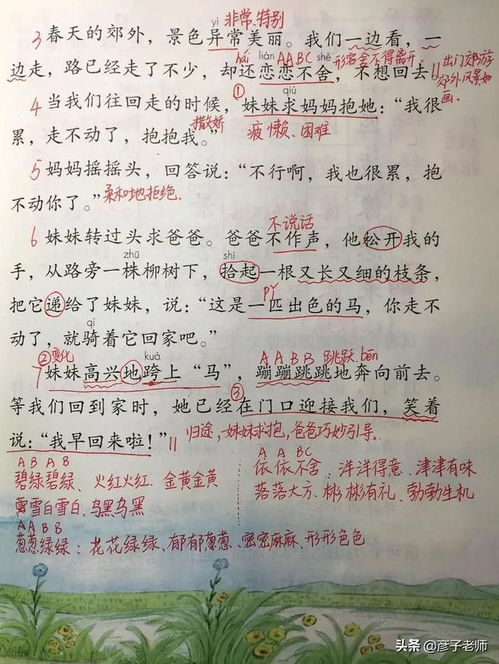 yì 非常.特别
3 春天的郊外，景色异常美丽。我们一边看，一
hái liàn AABC shě 形容舍不得离开
边走，路已经走了不少，却还恋恋不舍，不想回去 || 出门郊游 郊外风景如画.
① qiú
4 当我们往回走的时候，妹妹求妈妈抱她：“我很
累，走不动了，抱抱我。” 撒娇 疲惫、困难
5 妈妈摇摇头，回答说：“不行啊，我也很累，抱
不动你了。” 柔和地拒绝.
不说话
6 妹妹转过头求爸爸。爸爸不作声，他松开我的
zhū shí
手，从路旁一株柳树下，拾起一根又长又细的枝条，
pǐ
把它递给了妹妹，说：“这是一匹出色的马，你走不
qí
动了，就骑着它回家吧。”
②变化 kuà AABB 跳跃 bèn
7 妹妹高兴地跨上“马”，蹦蹦跳跳地奔向前去。
③
等我们回到家时，她已经在门口迎接我们，笑着
说：“我早回来啦！” || 归途，妹妹求抱，爸爸巧妙引导.
ABAB
碧绿碧绿、火红火红、金黄金黄
雪白雪白、乌黑乌黑
AABB
葱葱绿绿：花花绿绿、郁郁葱葱、密密麻麻、形形色色
AABC
依依不舍、洋洋得意、津津有味
落落大方、彬彬有礼、勃勃生机
头条 @彦子老师